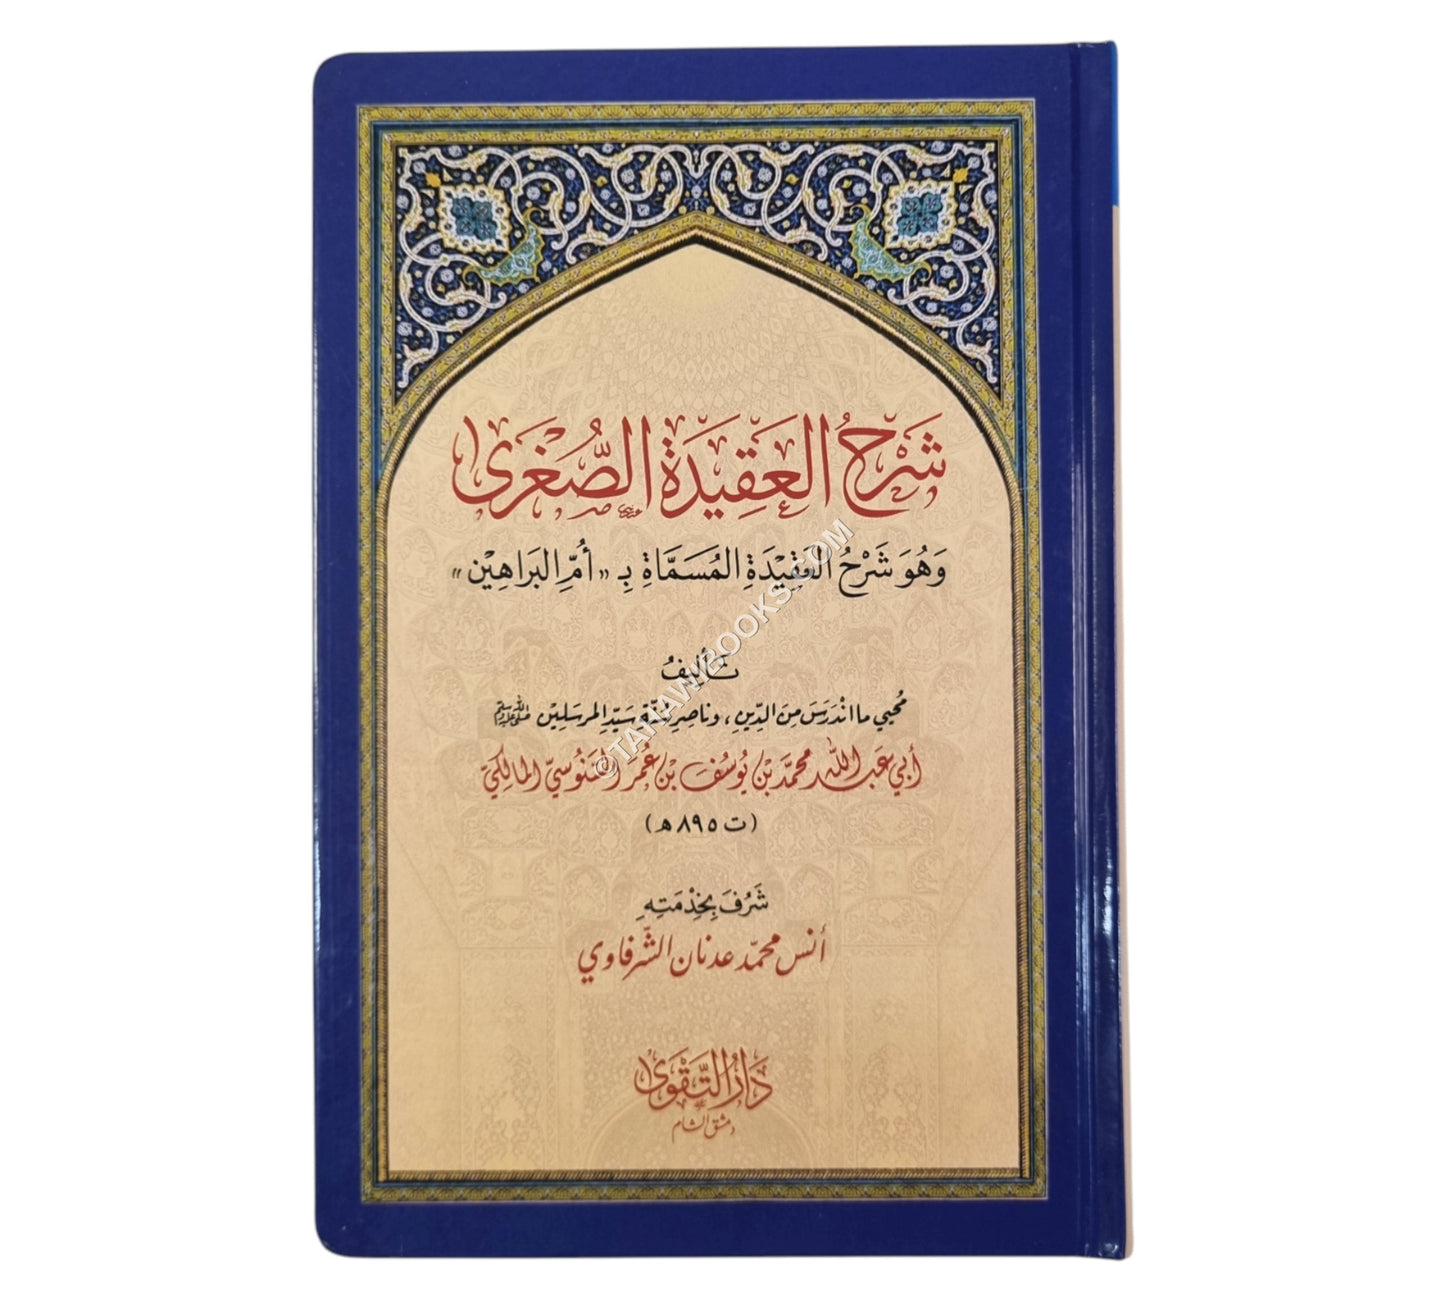 شَرْحُ العَقِيدَةِ الصُّغْرَى
وَهُوَ شَرْحُ العَقِيْدَةِ المُسَمَّاةِ بِـ «أُمِّ البَرَاهِيْنِ»
تأليفُ
مُحيي ما اندَرَسَ مِنَ الدِّينِ ، وناصِرِ سُنَّةِ سَيِّدِ المرسَلِين ﷺ
أبي عَبدِ اللهِ محمَّدِ بْنِ يُوسُفَ بْنِ عُمَرَ السَّنُوسيِّ المالِكيِّ
(ت ٨٩٥ هـ)
شَرُفَ بِخِدْمَتِهِ
أنس محمّد عدنان الشّرفاوي
دَارُ التَّقْوَى
دمشق الشام
©TAHAWIBOOKS.COM